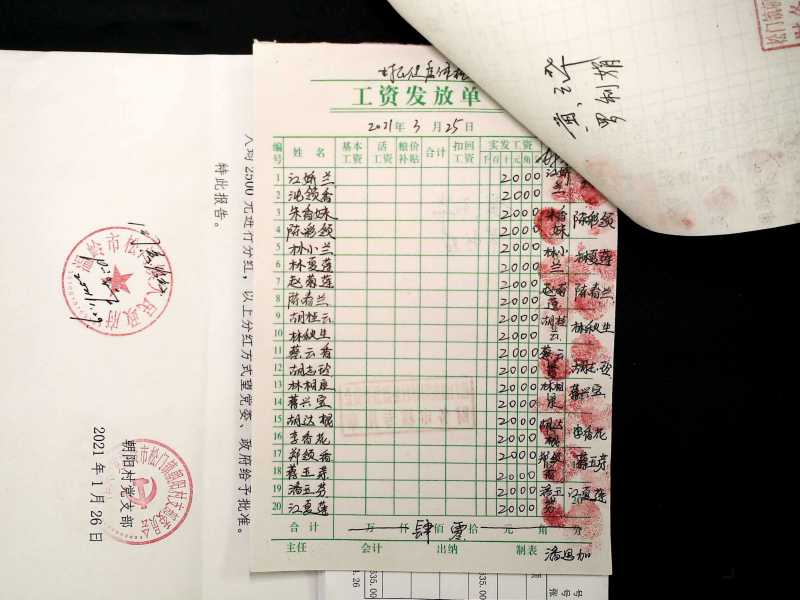 工资发放单
2021年3月25日
编号 姓名 基本工资 活工资 粮价补贴 合计 扣回工资 实发工资
千百十元角
1 江娇兰 2000 江娇兰
2 沈领香 2000
3 朱香妹 2000 朱香妹
4 陈彩领 2000 陈彩领
5 林小兰 2000 林小兰
6 林夏莲 2000 林夏莲
7 赵菊莲 2000 赵菊莲
8 陈春兰 2000 陈春兰
9 胡桂云 2000 胡桂云
10 林秋生 2000 林秋生
11 蔡云香 2000 蔡云香
12 胡志玲 2000 胡志玲
13 林相庭 2000 林相庭
14 蒋兴宝 2000 蒋兴宝
15 胡达根 2000 胡达根
16 李香花 2000 李香花
17 郑领香 2000 郑领香
18 2000
19 潘玉芬 2000 潘玉芬
20 江夏莲 2000 江夏莲
合计 万 仟 肆 佰 零 拾 元 角 分
主任 会计 出纳 制表 潘恩加
2500元进行分红，以上分红方式望党委、政府给予批准。
特此报告。
朝阳村党支部
2021年1月26日
温岭市松门镇人民政府
市松门镇朝阳村支部委员会
罗利娟
松门镇